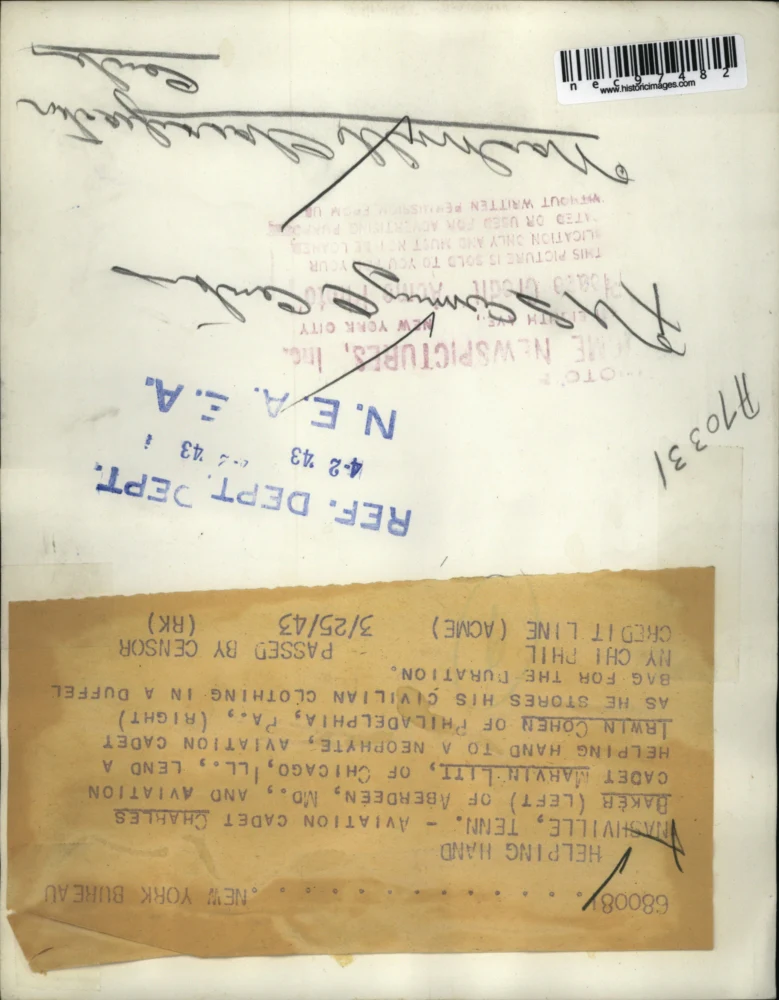 680081 . . . . . . . . . . . . .NEW YORK BUREAU
HELPING HAND
NASHVILLE, TENN. - AVIATION CADET CHARLES
BAKER (LEFT) OF ABERDEEN, MD., AND AVIATION
CADET MARVIN LITT, OF CHICAGO, ILL., LEND A
HELPING HAND TO A NEOPHYTE, AVIATION CADET
IRWIN COHEN OF PHILADELPHIA, PA., (RIGHT)
AS HE STORES HIS CIVILIAN CLOTHING IN A DUFFEL
BAG FOR THE DURATION.
NY CHI PHIL PASSED BY CENSOR
CREDIT LINE (ACME) 3/25/43 (RK)
REF. DEPT. DEPT.
4-2 43 4-2 43
N. E. A. E. A.
ACME NEWSPICTURES, Inc.
EIGHTH AVE., NEW YORK CITY
Please Credit "Acme Photo"
THIS PICTURE IS SOLD TO YOU FOR YOUR
PUBLICATION ONLY AND MUST NOT BE LOANED
OR USED FOR ADVERTISING PURPOSES
WITHOUT WRITTEN PERMISSION FROM US
Center
Nashville Classification
Center
nec97482
www.historicimages.com